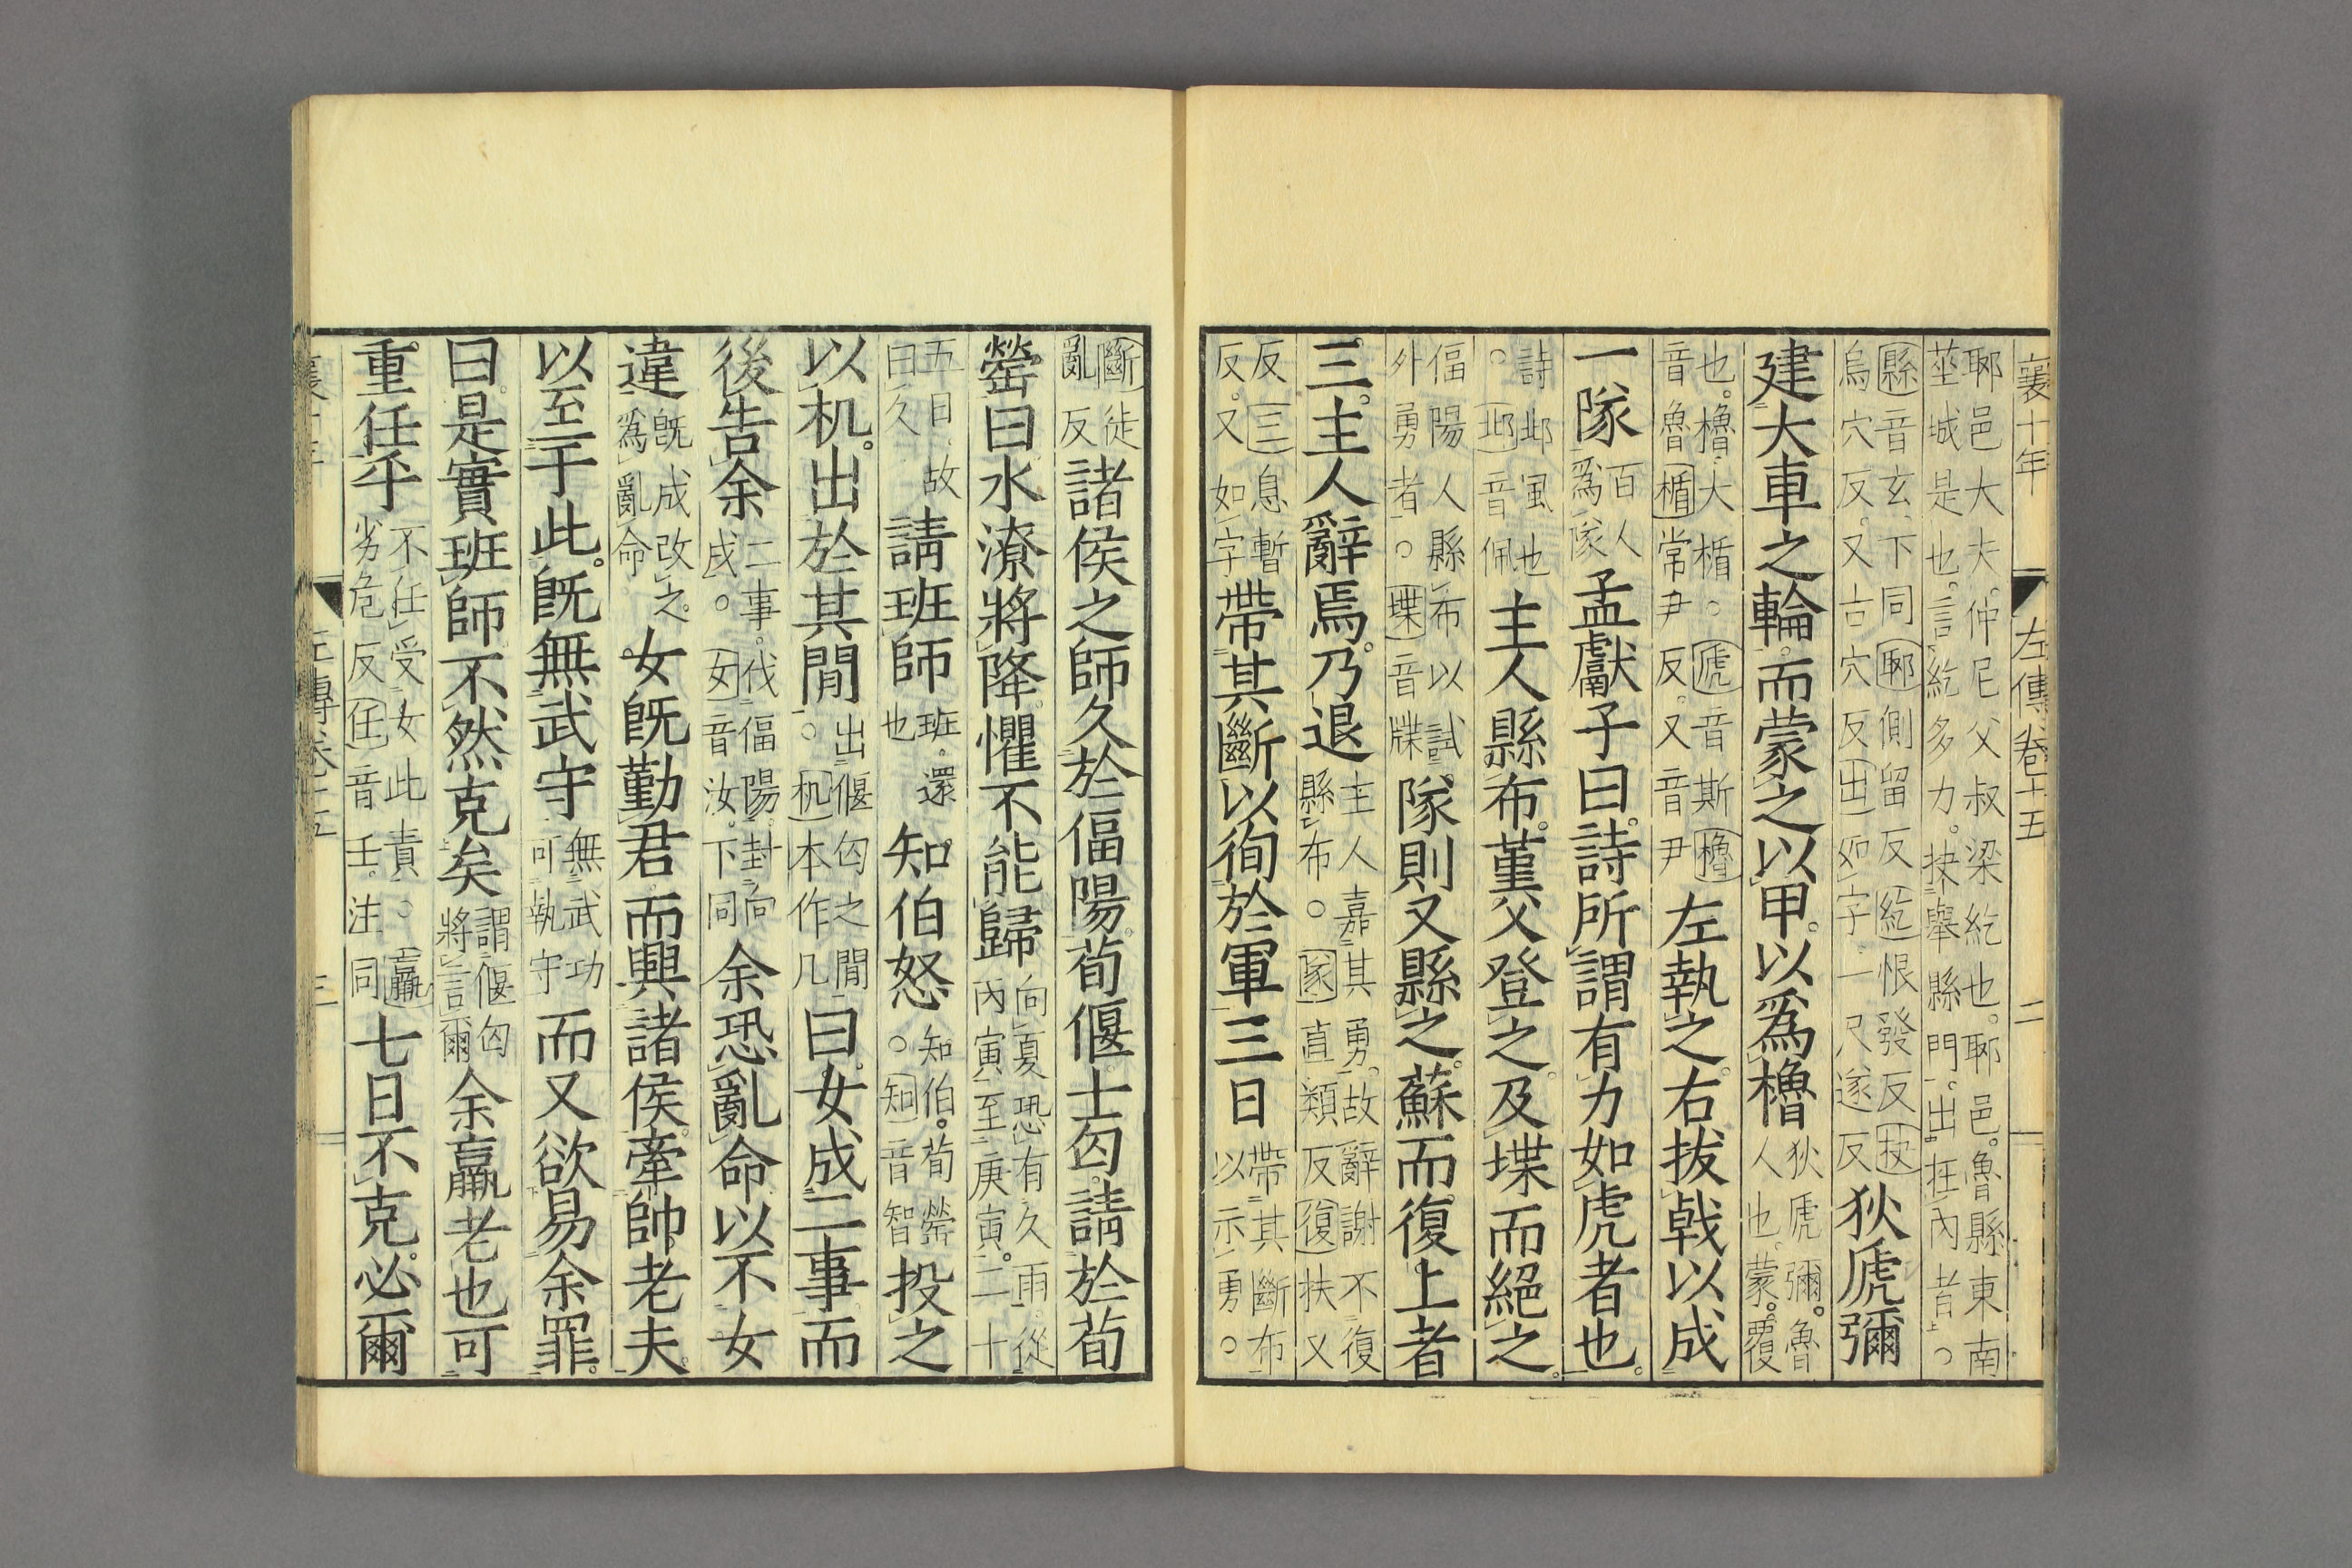 襄十年 左傳卷十五 二
郰邑大夫。仲尼父叔梁紇也。郰邑。魯縣東南
莝城是也。言紇多力。抉舉縣門。出在內者。○
縣音玄下同郰側留反紇恨發反抉
烏穴反。又古穴反出如字。一尺遂反狄虒彌
建大車之輪而蒙之以甲。以爲櫓狄虒彌。魯人也。蒙。覆
也。櫓。大楯。○虒音斯櫓音魯楯常尹反。又音尹左執之。右拔戟以成
一隊百人爲隊孟獻子曰。詩所謂有力如虎者也。
詩邶風也。○邶音佩主人縣布。堇父登之。及堞而絕之。
偪陽人縣布以試外勇者。○堞音牒隊則又縣之。蘇而復上者
三。主人辭焉。乃退主人嘉其勇。故辭謝不復縣布。○隊直類反復扶又
反三息暫反。又如字帶其斷以徇於軍三日帶其斷布以示勇。○
斷徒亂反諸侯之師久於偪陽。荀偃士匄請於荀
罃曰。水潦將降。懼不能歸向夏恐有久雨。從丙寅至庚寅。二十
五日。故曰久請班師班。還也知伯怒知伯。荀罃○知音智投之
以机。出於其閒出偃匄之閒○机本作几曰。女成二事而
後告余二事。伐偪陽。封向戌。○女音汝。下同余恐亂命以不女
違旣成改之。爲亂命女旣勤君而興諸侯。牽帥老夫。
以至于此。旣無武守無武功可執守而又欲易余罪。
曰。是實班師不然克矣謂偃匄將言爾余羸老也可
重任乎不任受女此責。○羸劣危反任音壬。注同七日不克。必爾
三